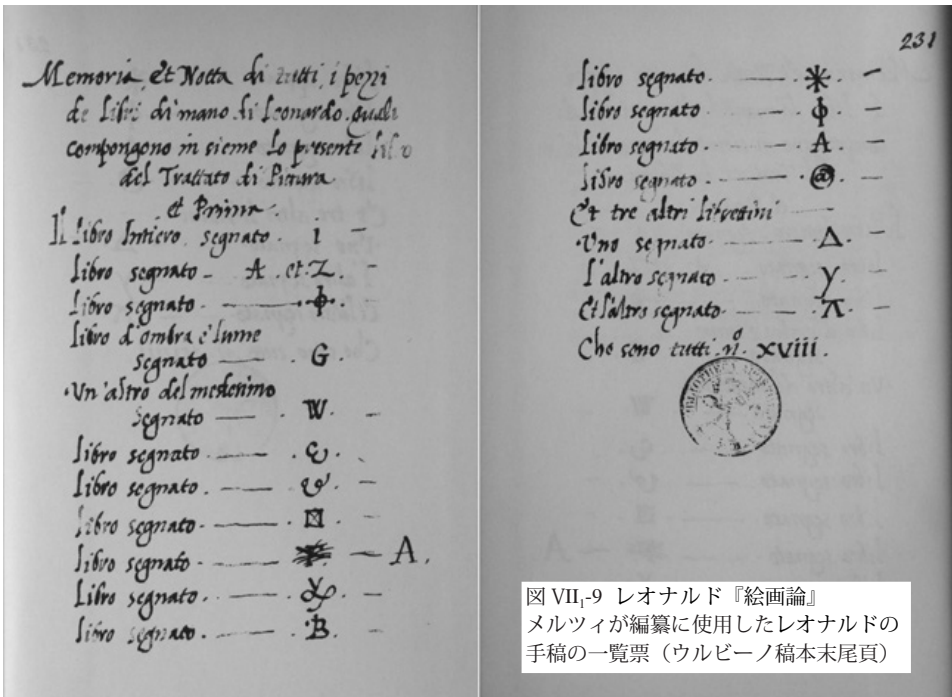 Memoria et Notta di tutti i pezzi
de libri di mano di Leonardo quali
compongono in sieme lo presente libro
del Trattato di Pittura
et Prima
Il Libro Intiero segnato . 1 –
libro segnato – A . et . Z . –
libro segnato —— . ϕ .
libro d'ombra e lume
segnato —— G .
. Un' altro del medesimo
segnato —— . W . –
libro segnato —— . . –
libro segnato . —— . . –
libro segnato . —— . ⊠ . –
libro segnato . —— . – A .
libro segnato . —— . . –
libro segnato . —— . B . –
231
libro segnato . —— ⚹ . –
libro segnato —— ϕ . –
libro segnato . —— . A . –
libro segnato . —— @ . –
Et tre altri librettini
. Uno segnato . —— . Δ . –
l'altro segnato . —— y . –
Et l'altro segnato . —— . Λ . –
Che sono tutti . nº . xviii .
図 VII₁-9 レオナルド『絵画論』
メルツィが編纂に使用したレオナルドの
手稿の一覧票（ウルビーノ稿本末尾頁）